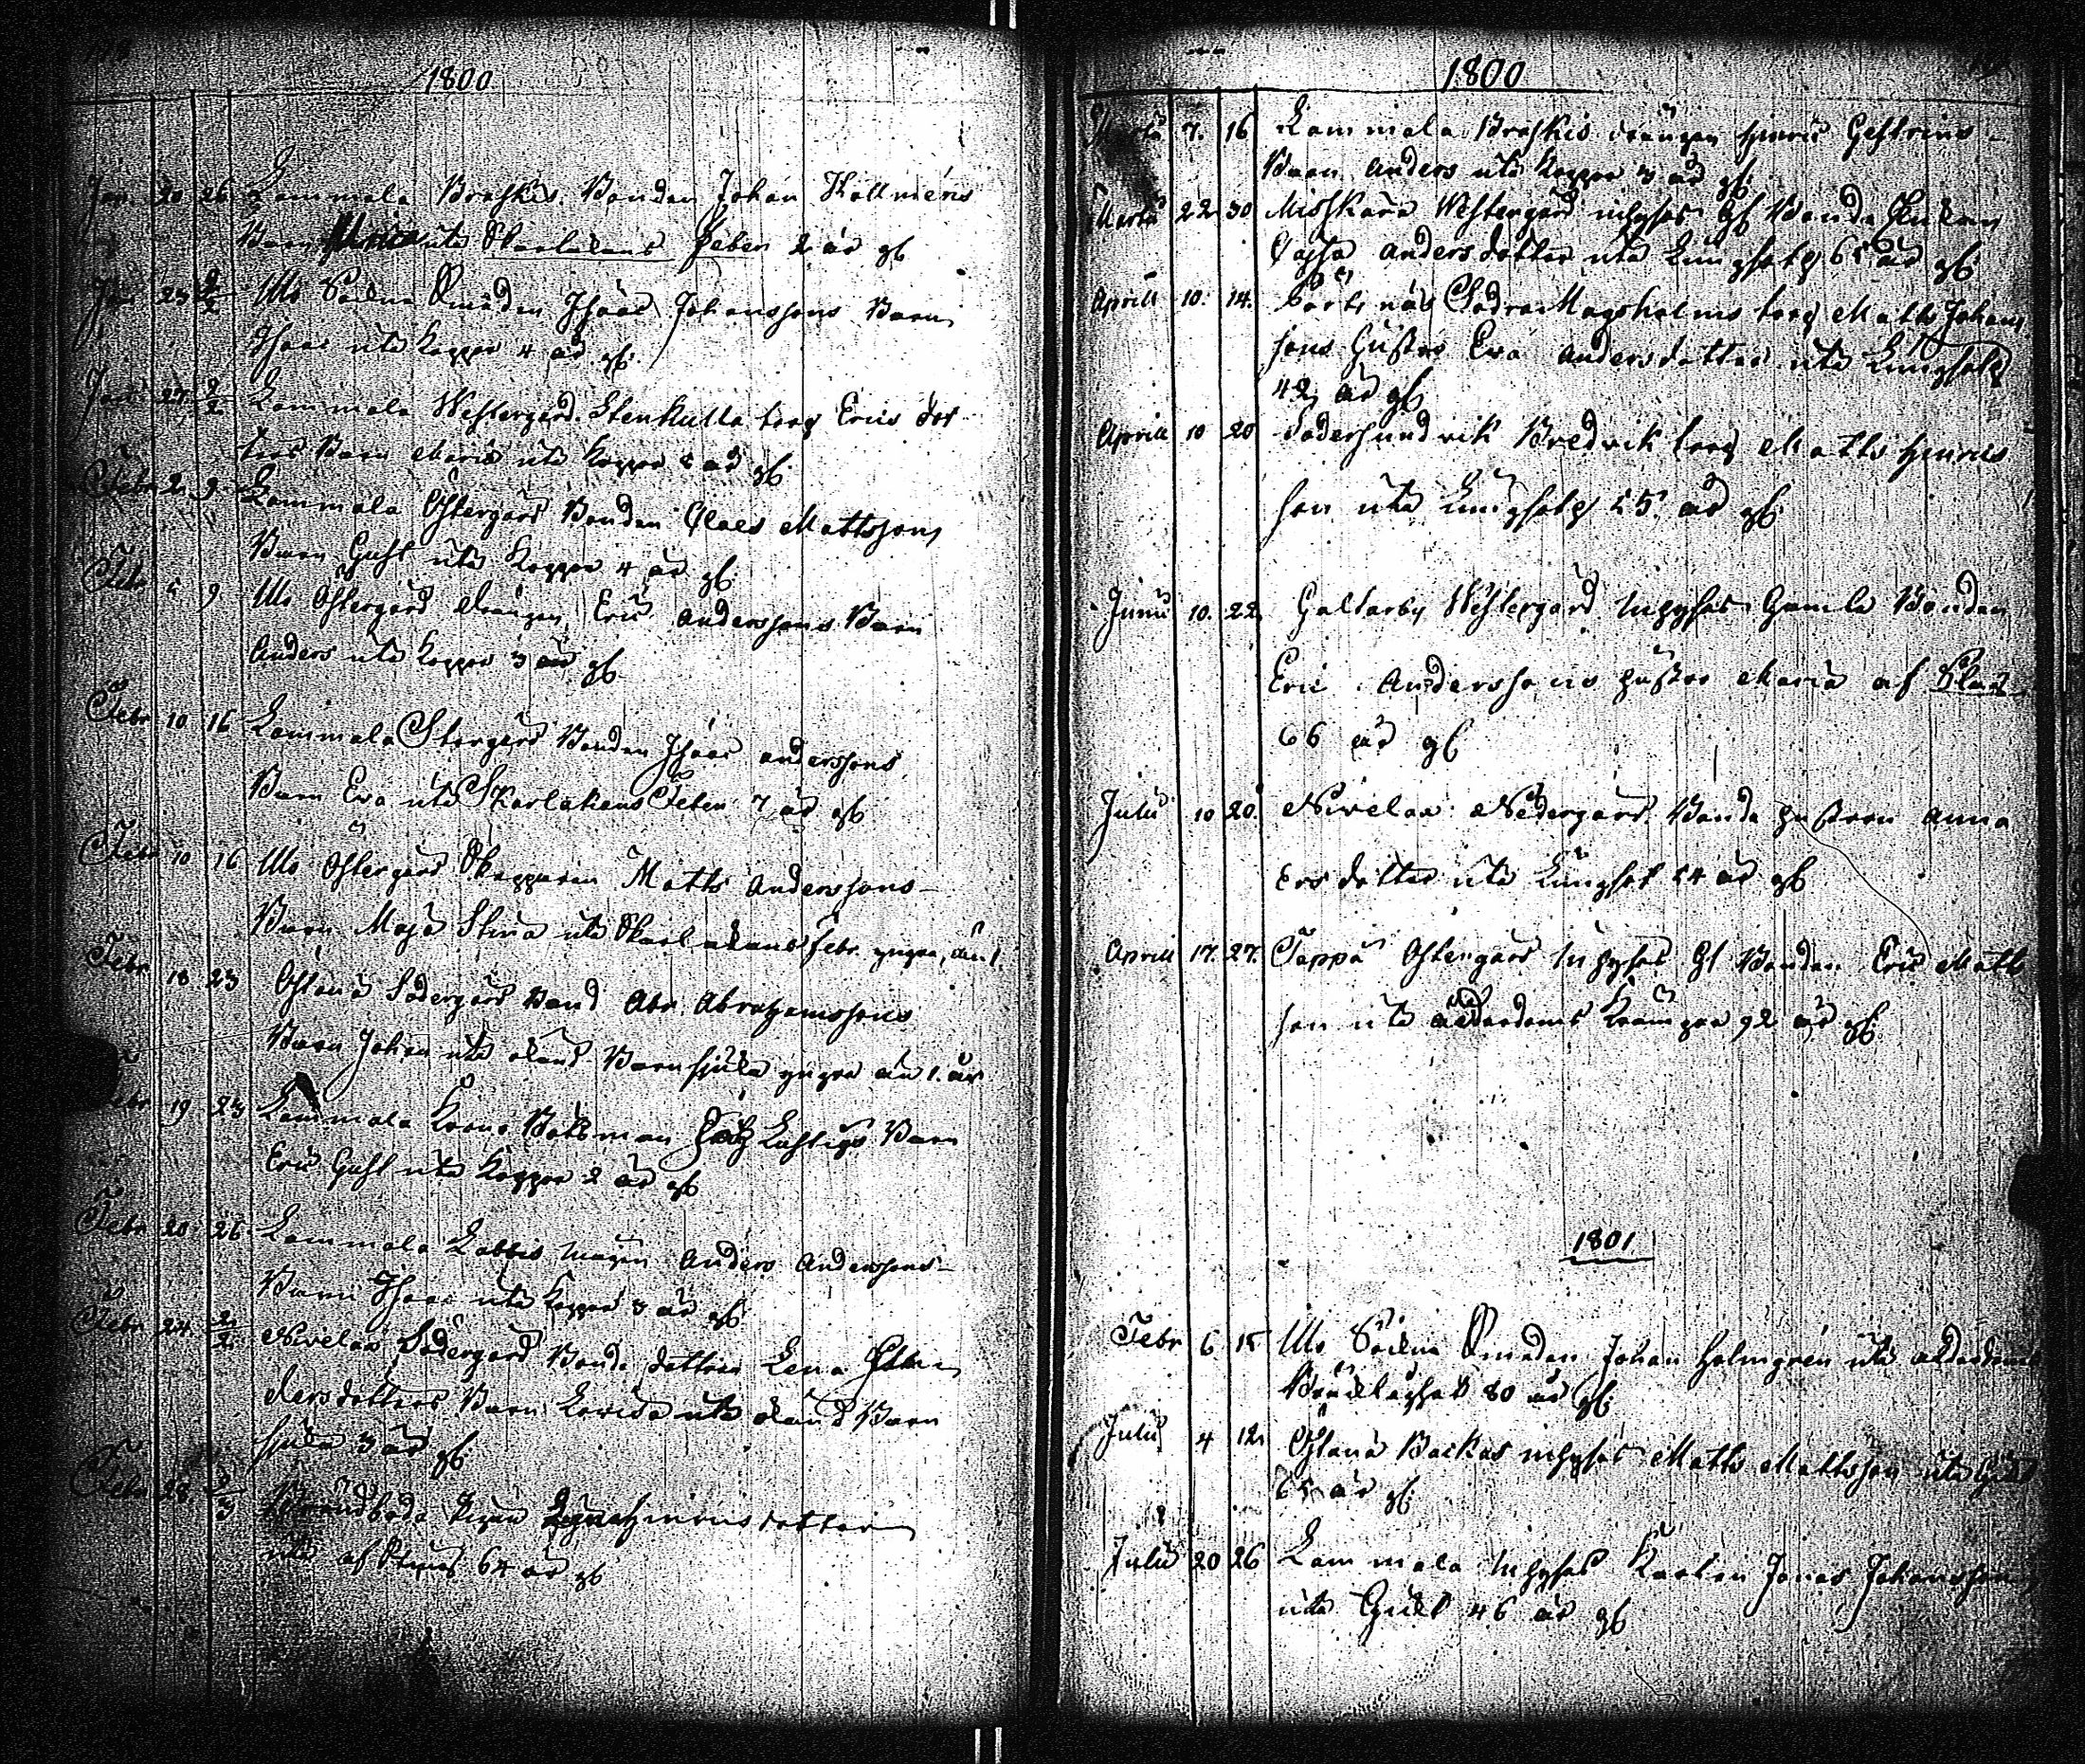 1800
Jan 20 26 Lammala Braskis Bonden Johan Hallmens
Barn utâ Skarlakans Feber 2 år gl
Jan 23 2/2 Ulo Smeden Isaac Johanssons Barn
Isaac utâ Koppor 4 år gl
Jan 27 2/2 Lammala Westergård Stenkulla torp Erics dot
ters Barn Maria utâ Koppor år gl
Febr 2 9 Lammala Östergård Bonden Claes Mattssons
Barn Gust utâ Koppor 4 år gl
Febr 9 Ulo Östergård drängen Eric Anderssons Barn
Anders utâ Koppor 3 år gl
Febr 10 16 Lammala Storgård Bonden Isaac anderssons
Barn Eva utâ Skarlakans Feber 7 år gl
Febr 10 16 Ulo Östergård Skepparen Matts Anderssons
Barn Maja Stina utâ Skarlakans febr yngre än 1.
Febr 18 23 Östanå Södergård Bond Abr. Abrahamssons
Barn Johan utâ okänd Barnsjuka yngre än 1. år
Febr 19 23 Lammala Krono Båtsman Lustigs Barn
Eric Gust utâ Koppor 2 år gl
Febr 20 26 Lammala Labbis Anders Anderssons
Barn Isaac utâ Koppor 3 år gl
Febr 24 2/2 Nivelax Södergård Bonde dottren Lena
dersdotters Barn Lovisa utâ okänd Barn
sjuka 3 år gl
Febr 28 2/3 Strandboda Pigan Hinricsdotter
utâ af 64 år gl
1800
Martii 7. 16 Lammala Braskis drängen Hinric Gestrins
Barn Anders utâ Koppor 3 år gl
Martii 22 30 Misskärr Westergård inhyses Gl Bonde Enkan
Cajsa andersdotter utâ Lungsot 65 år gl
Aprill 10. 14. Södra Magsholms torp Matts Johans
sons Hustru Eva Andersdotter utâ Lungsot
42 år gl
Aprill 10 20 Södersundvik Bredvik torp Matts Hinrics
son utâ Lungsot 55 år gl
Junii 10. 22 Galtarby Westergård Inhyses Gamle Bonden
Eric Anderssons hustru Maria af
66 år gl
Julii 10 20. Nivelax Nedergård Bonde hustrun Anna
Ersdotter utâ Lungsot 54 år gl
Aprill 17. 27. Tappå Östergård Inhyses Gl Bonden Eric Matts
son utâ ålderdoms Krämpor 92 år gl
1801
Febr 6 15 Ulo Smeden Johan Holmgren utâ ålderdoms
Bräcklighet 80 år gl
Julii 4 12 Östanå Backas inhyses Matts Mattsson utâ
65 år gl
Julii 20 26 Lammala Inhyses Karlen Jonas Johansson
utâ 46 år gl